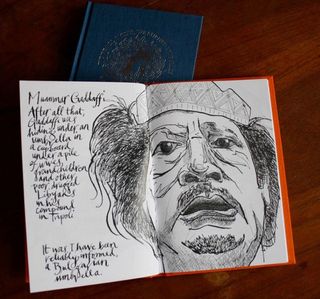 Muammar Gaddaffi
After all that,
Gaddaffi was
hiding under an
umbrella in
a cupboard
under a pile
of wives,
grandchildren
and other
poor, drugged
Libyans
in his
compound
in Tripoli
It was I have been
reliably informed,
a Bulgarian
umbrella.